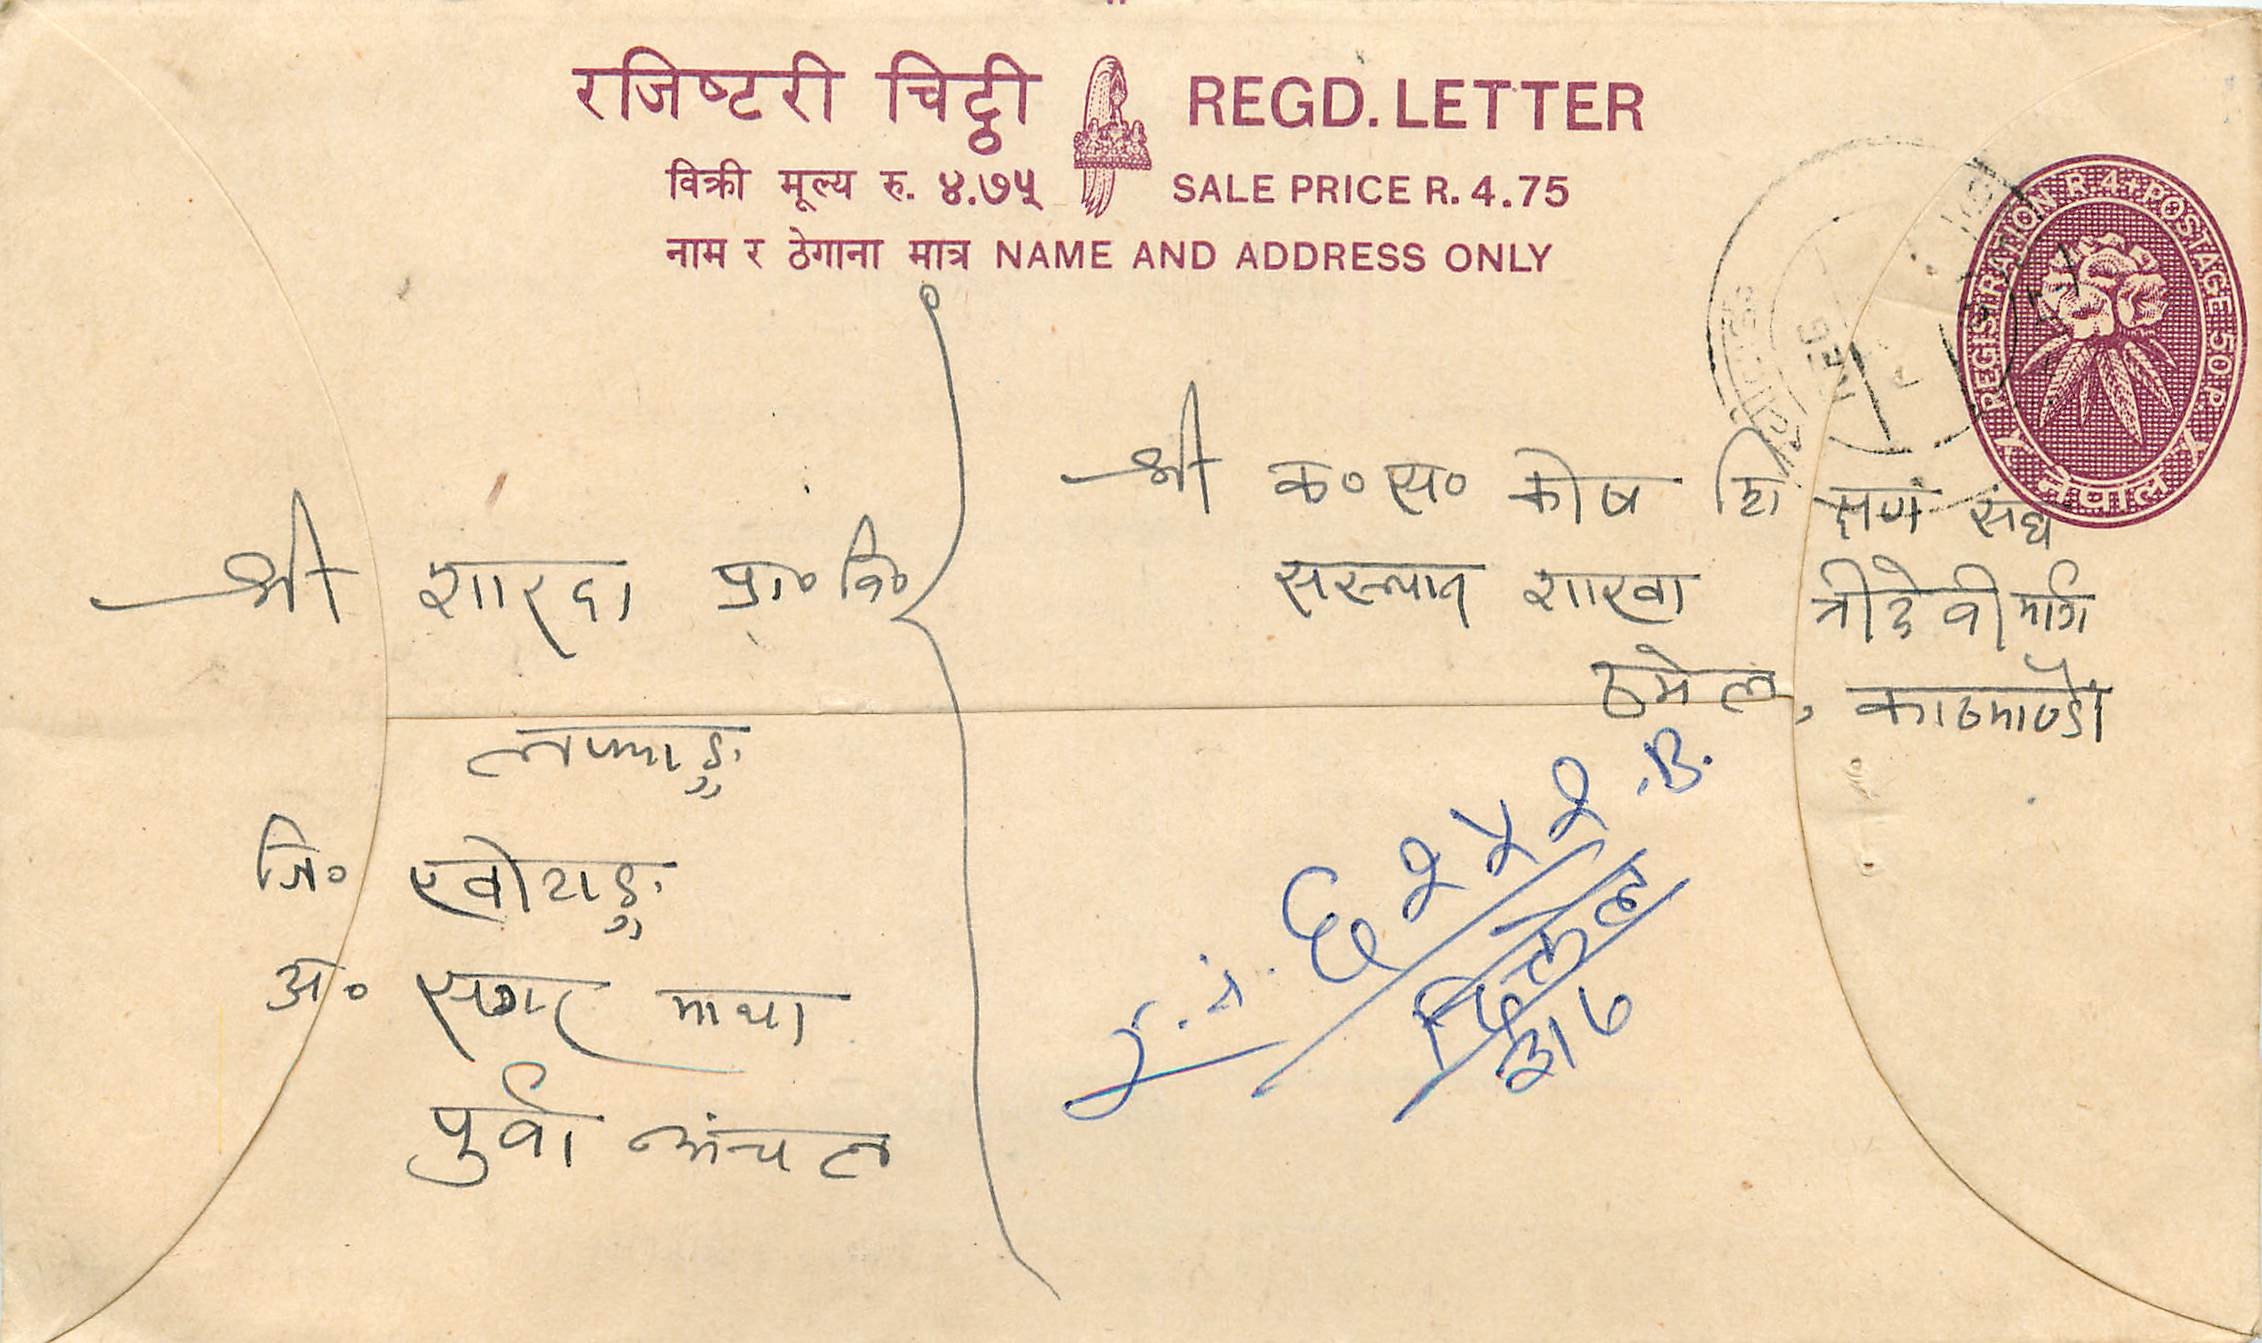 रजिष्टरी चिट्ठी REGD. LETTER
विक्री मूल्य रु. ४.७५ SALE PRICE R. 4.75
नाम र ठेगाना मात्र NAME AND ADDRESS ONLY
REGISTRATION R. 4+POSTAGE 50 P.
नेपाल
श्री क॰ स॰ कोष शिक्षण संघ
शाखा त्रीदेवी मार्ग
ठमेल, काठमाण्डौ
श्री शारदा प्रा॰ वि॰
जि॰ खोटाङ्ग
अ॰ सगर माथा
पुर्वा अंचल
६२५२ .B.